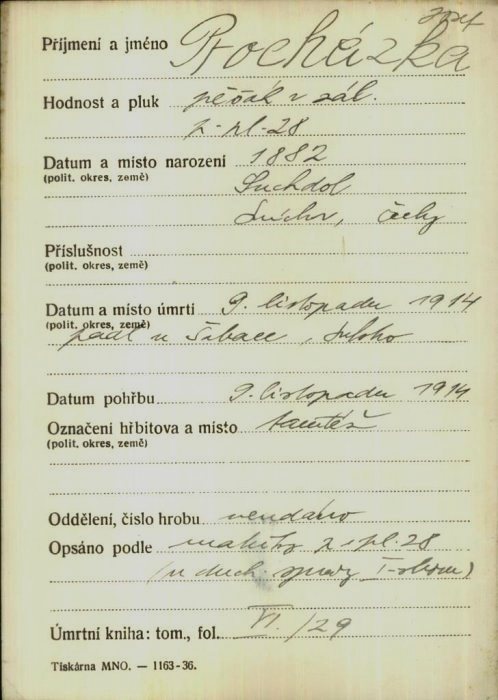 Josef
Příjmení a jméno Procházka
Hodnost a pluk pěšák v zál.
p. pl. 28
Datum a místo narození 1882
(polit. okres, země) Suchdol
Smíchov, Čechy
Příslušnost
(polit. okres, země)
Datum a místo úmrtí 9. listopadu 1914
(polit. okres, země)
padl u Šabace, Srbsko
Datum pohřbu 9. listopadu 1914
Označení hřbitova a místo tamtéž
(polit. okres, země)
Oddělení, číslo hrobu neudáno
Opsáno podle matriky p. pl. 28
(u duch. správy
Úmrtní kniha: tom., fol. VI. / 29
Tiskárna MNO. — 1163-36.